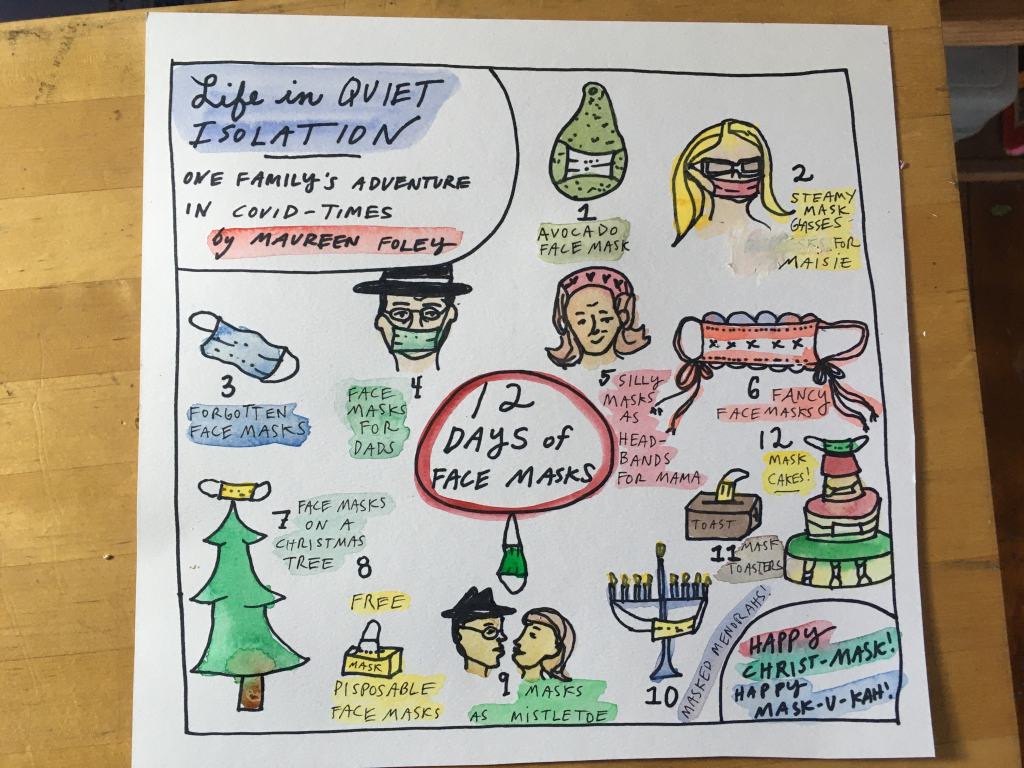 Life in QUIET
ISOLATION
ONE FAMILY'S ADVENTURE
IN COVID-TIMES
by MAUREEN FOLEY
1
AVOCADO
FACE MASK
2
STEAMY
MASK
GLASSES
FOR
MAISIE
3
FORGOTTEN
FACE MASKS
4
FACE
MASKS
FOR
DADS
5
SILLY
MASKS
AS
HEAD-
BANDS
FOR MAMA
6 FANCY
FACE MASKS
12
DAYS of
FACE MASKS
7 FACE MASKS
ON A
CHRISTMAS
TREE
8
FREE
MASK
DISPOSABLE
FACE MASKS
9 MASKS
AS MISTLETOE
10 MASKED MENORAHS!
TOAST
11 MASK
TOASTERS
12
MASK
CAKES!
HAPPY
CHRIST-MASK!
HAPPY
MASK-U-KAH!